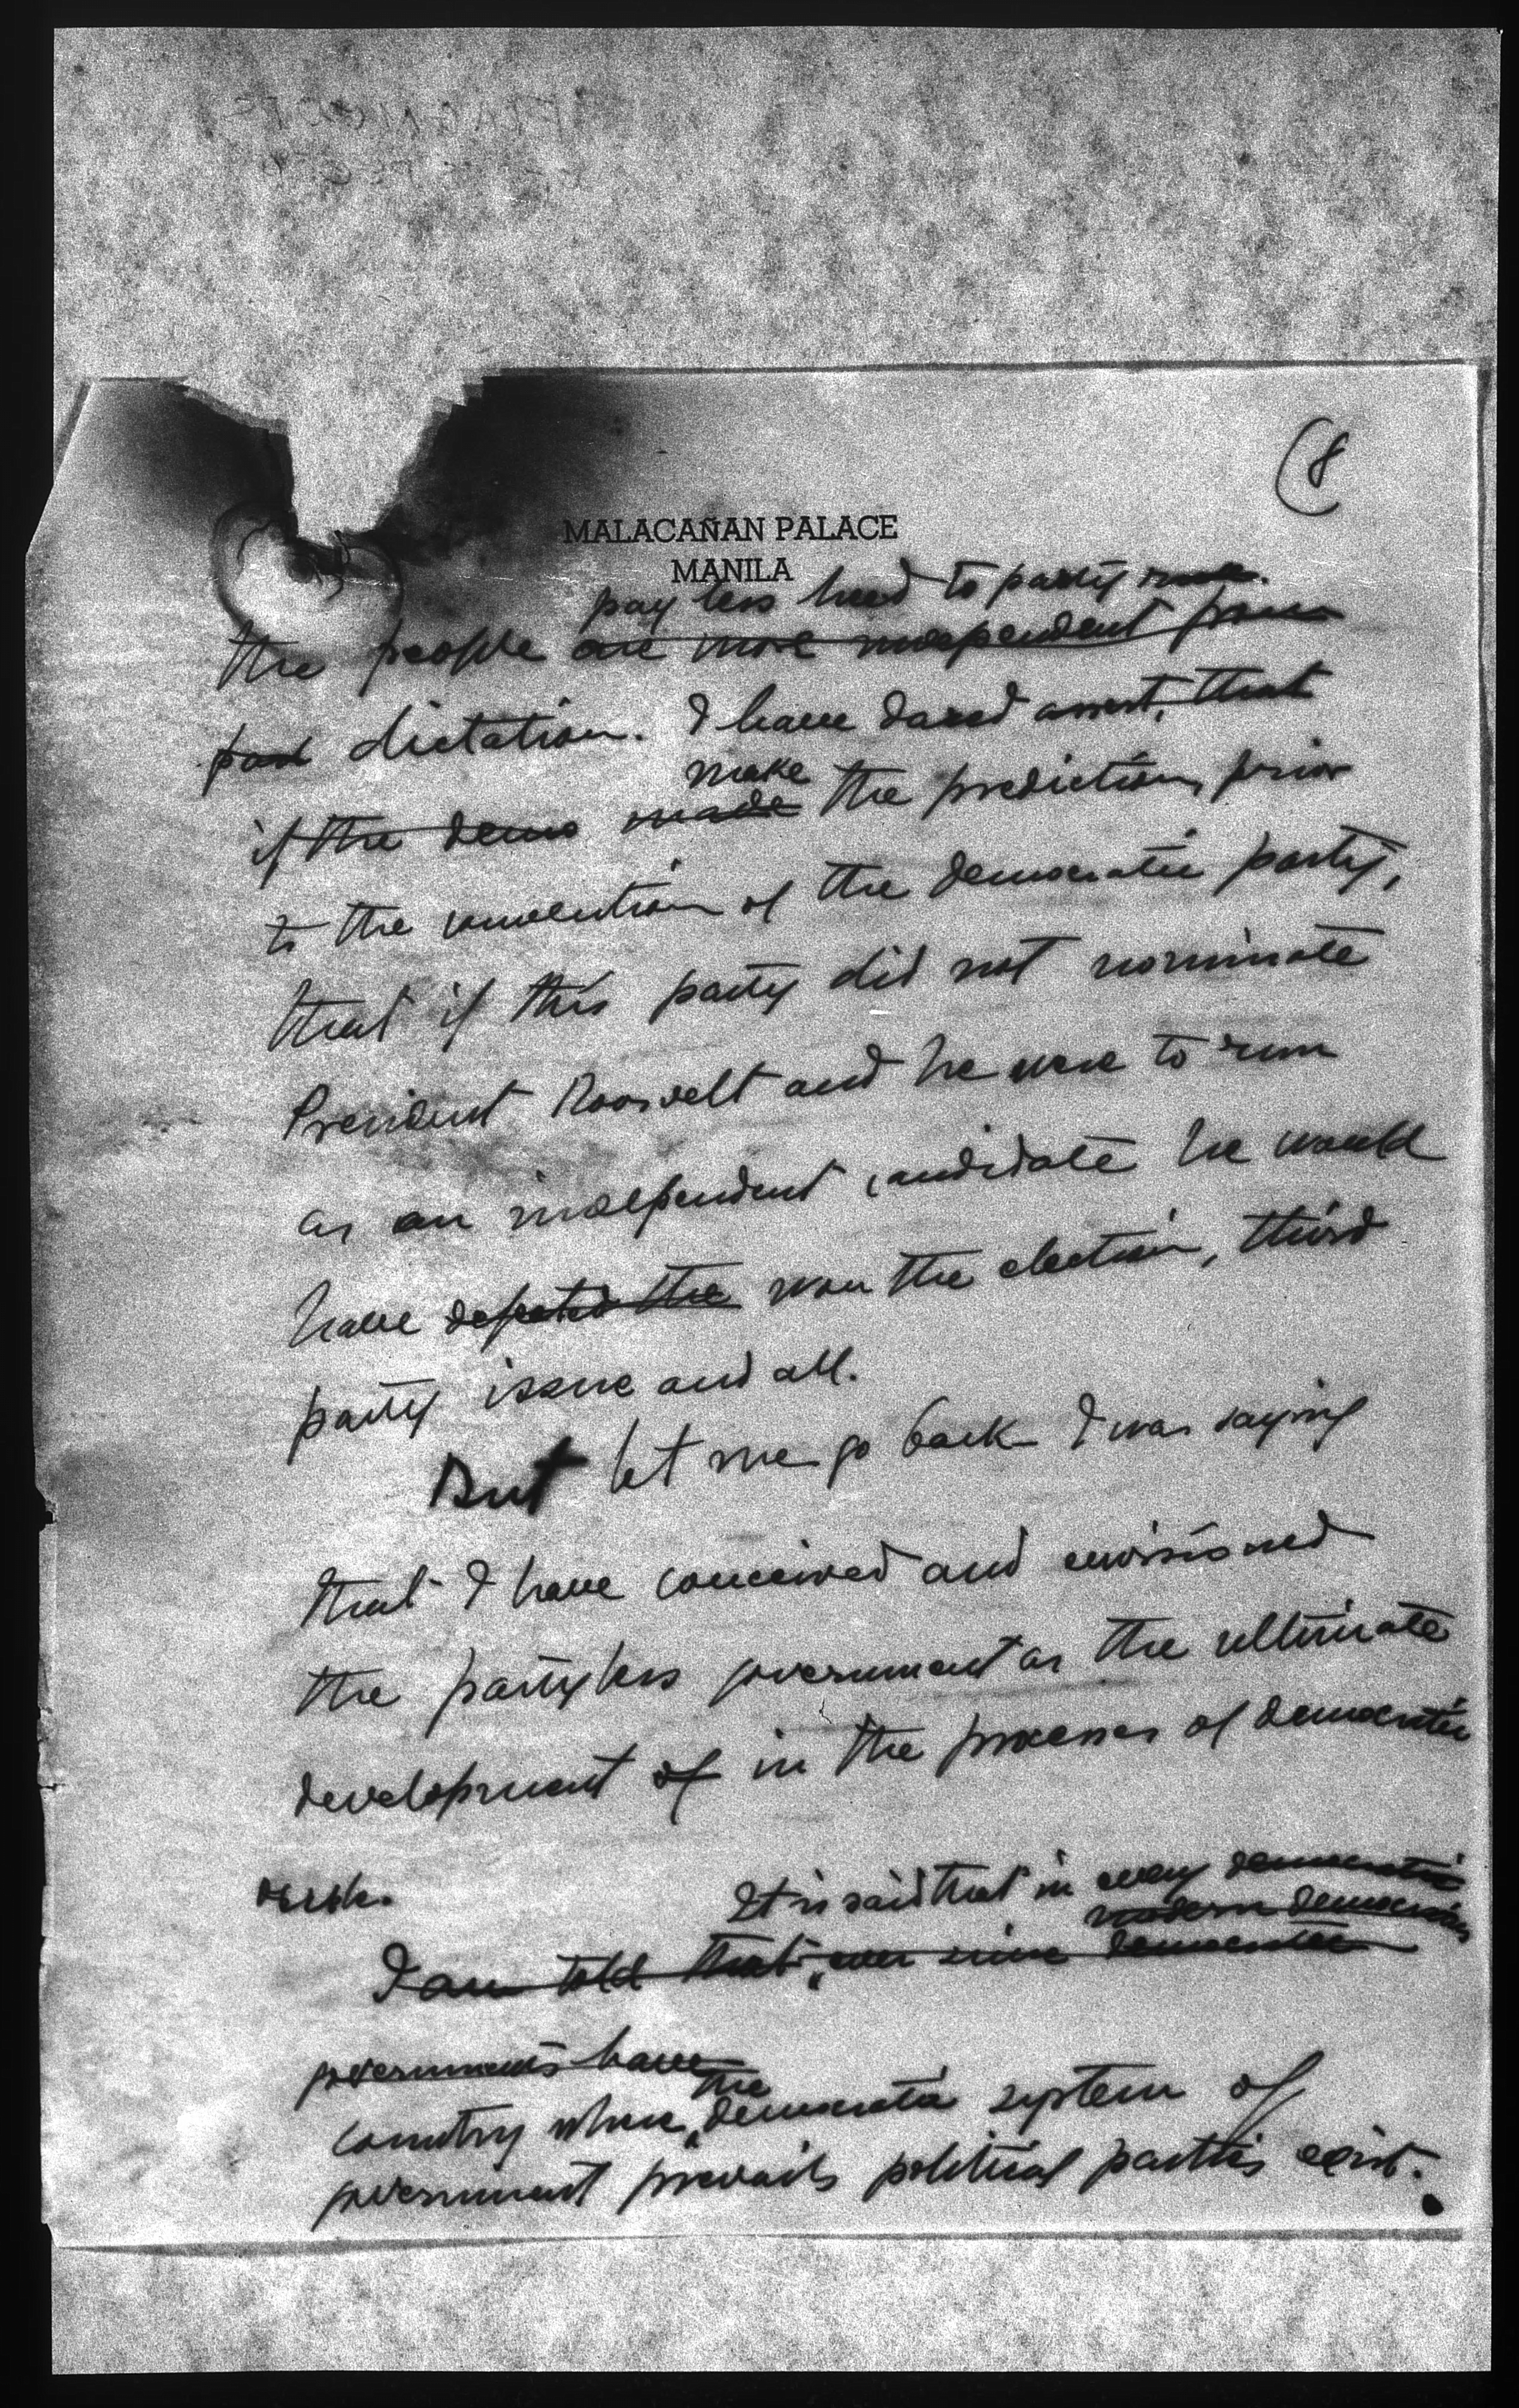 (8
MALACAÑAN PALACE
MANILA
pay less heed to party
the people are more independent from
dictation. I have dared assert, that
make
if the demo made the prediction, prior
to the convention of the democratic party,
that if this party did not nominate
President Roosvelt and he were to run
as an independent candidate he would
have defeated the won the election, third
party issue and all.
But let me go back I was saying
that I have conceived and envisioned
the partyless government as the ultimate
development of in the processes of democratic
rule.
It is said that in every democratic
modern democracies
I am told that, ever since democratic
governments have
the
country where democratic system of
government prevails political parties exist.